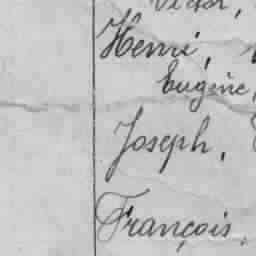 Victor,
Henri,
Eugène,
Joseph,
François,